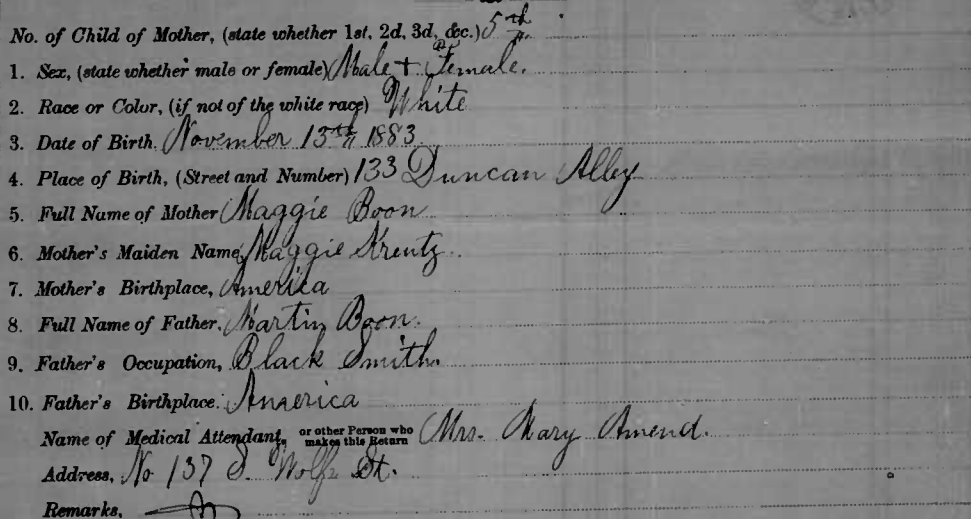 No. of Child of Mother, (state whether 1st, 2d, 3d, &c.) 5th
1. Sex, (state whether male or female) Male + Female.
2. Race or Color, (if not of the white race) White
3. Date of Birth, November 13th 1883
4. Place of Birth, (Street and Number) 133 Duncan Alley
5. Full Name of Mother Maggie Boon
6. Mother's Maiden Name, Maggie Krentz.
7. Mother's Birthplace, America
8. Full Name of Father, Martin Boon.
9. Father's Occupation, Black Smith.
10. Father's Birthplace. America
Name of Medical Attendant, or other Person who makes this Return Mrs. Mary Amend.
Address, No 137 S. Wolfe St.
Remarks,